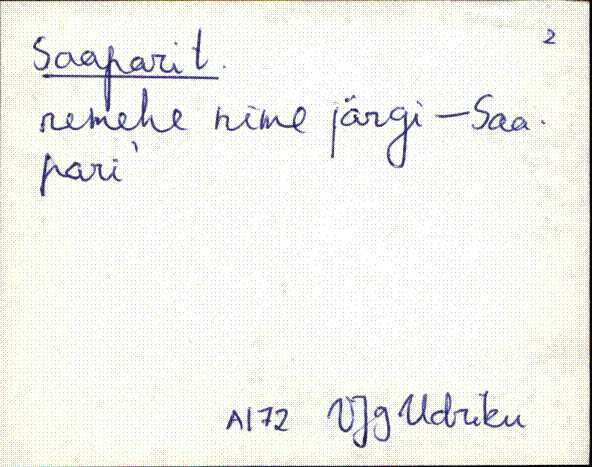 2
Saaparit.
nemehe nime järgi – Saa.
pari'
A172 VJg Udriku